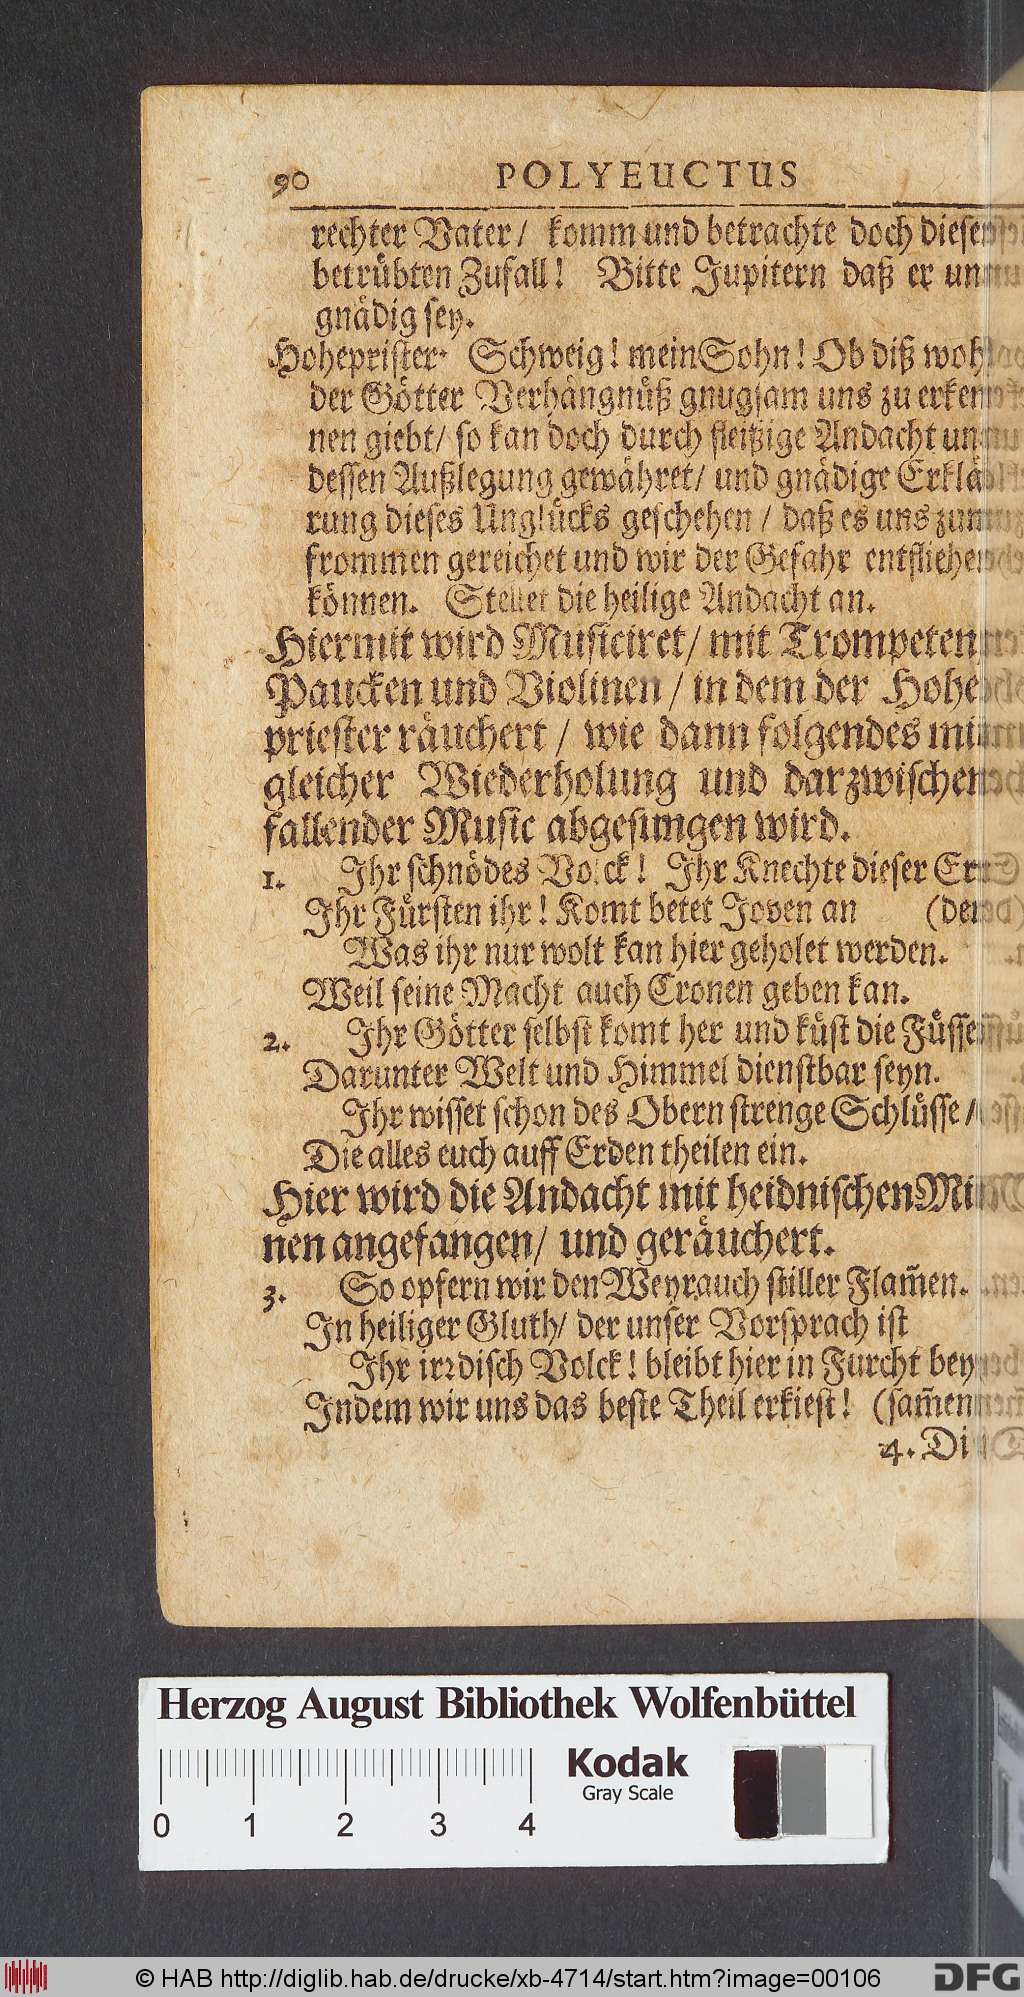 90 POLYEUCTUS
rechter Vater/ komm und betrachte doch diesen
betrübten Zufall! Bitte Jupitern daß er uns
gnädig sey.
Hoheprister. Schweig! mein Sohn! Ob diß wohl
der Götter Verhängnüß gnugsam uns zu erken-
nen giebt/ so kan doch durch fleißige Andacht uns
dessen Außlegung gewähret/ und gnädige Erklä-
rung dieses Unglücks geschehen / daß es uns zum
frommen gereichet und wir der Gefahr entfliehen
können. Stellet die heilige Andacht an.
Hiermit wird Musiciret/ mit Trompeten
Paucken und Violinen / in dem der Hohe-
priester räuchert / wie dann folgendes mit
gleicher Wiederholung und darzwischen
fallender Music abgesungen wird.
1. Ihr schnödes Volck! Ihr Knechte dieser Er-
Ihr Fürsten ihr! Komt betet Joven an (den
Was ihr nur wolt kan hier geholet werden.
Weil seine Macht auch Cronen geben kan.
2. Ihr Götter selbst komt her und küst die Füsse
Darunter Welt und Himmel dienstbar seyn.
Ihr wisset schon des Obern strenge Schlüsse /
Die alles euch auff Erden theilen ein.
Hier wird die Andacht mit heidnischen Mi-
nen angefangen/ und geräuchert.
3. So opfern wir den Weyrauch stiller Flam̃en.
In heiliger Gluth/ der unser Vorsprach ist
Ihr irꝛdisch Volck! bleibt hier in Furcht bey-
Indem wir uns das beste Theil erkiest! (sam̃en
4. Di
Herzog August Bibliothek Wolfenbüttel
Kodak
Gray Scale
0 1 2 3 4
© HAB http://diglib.hab.de/drucke/xb-4714/start.htm?image=00106
DFG